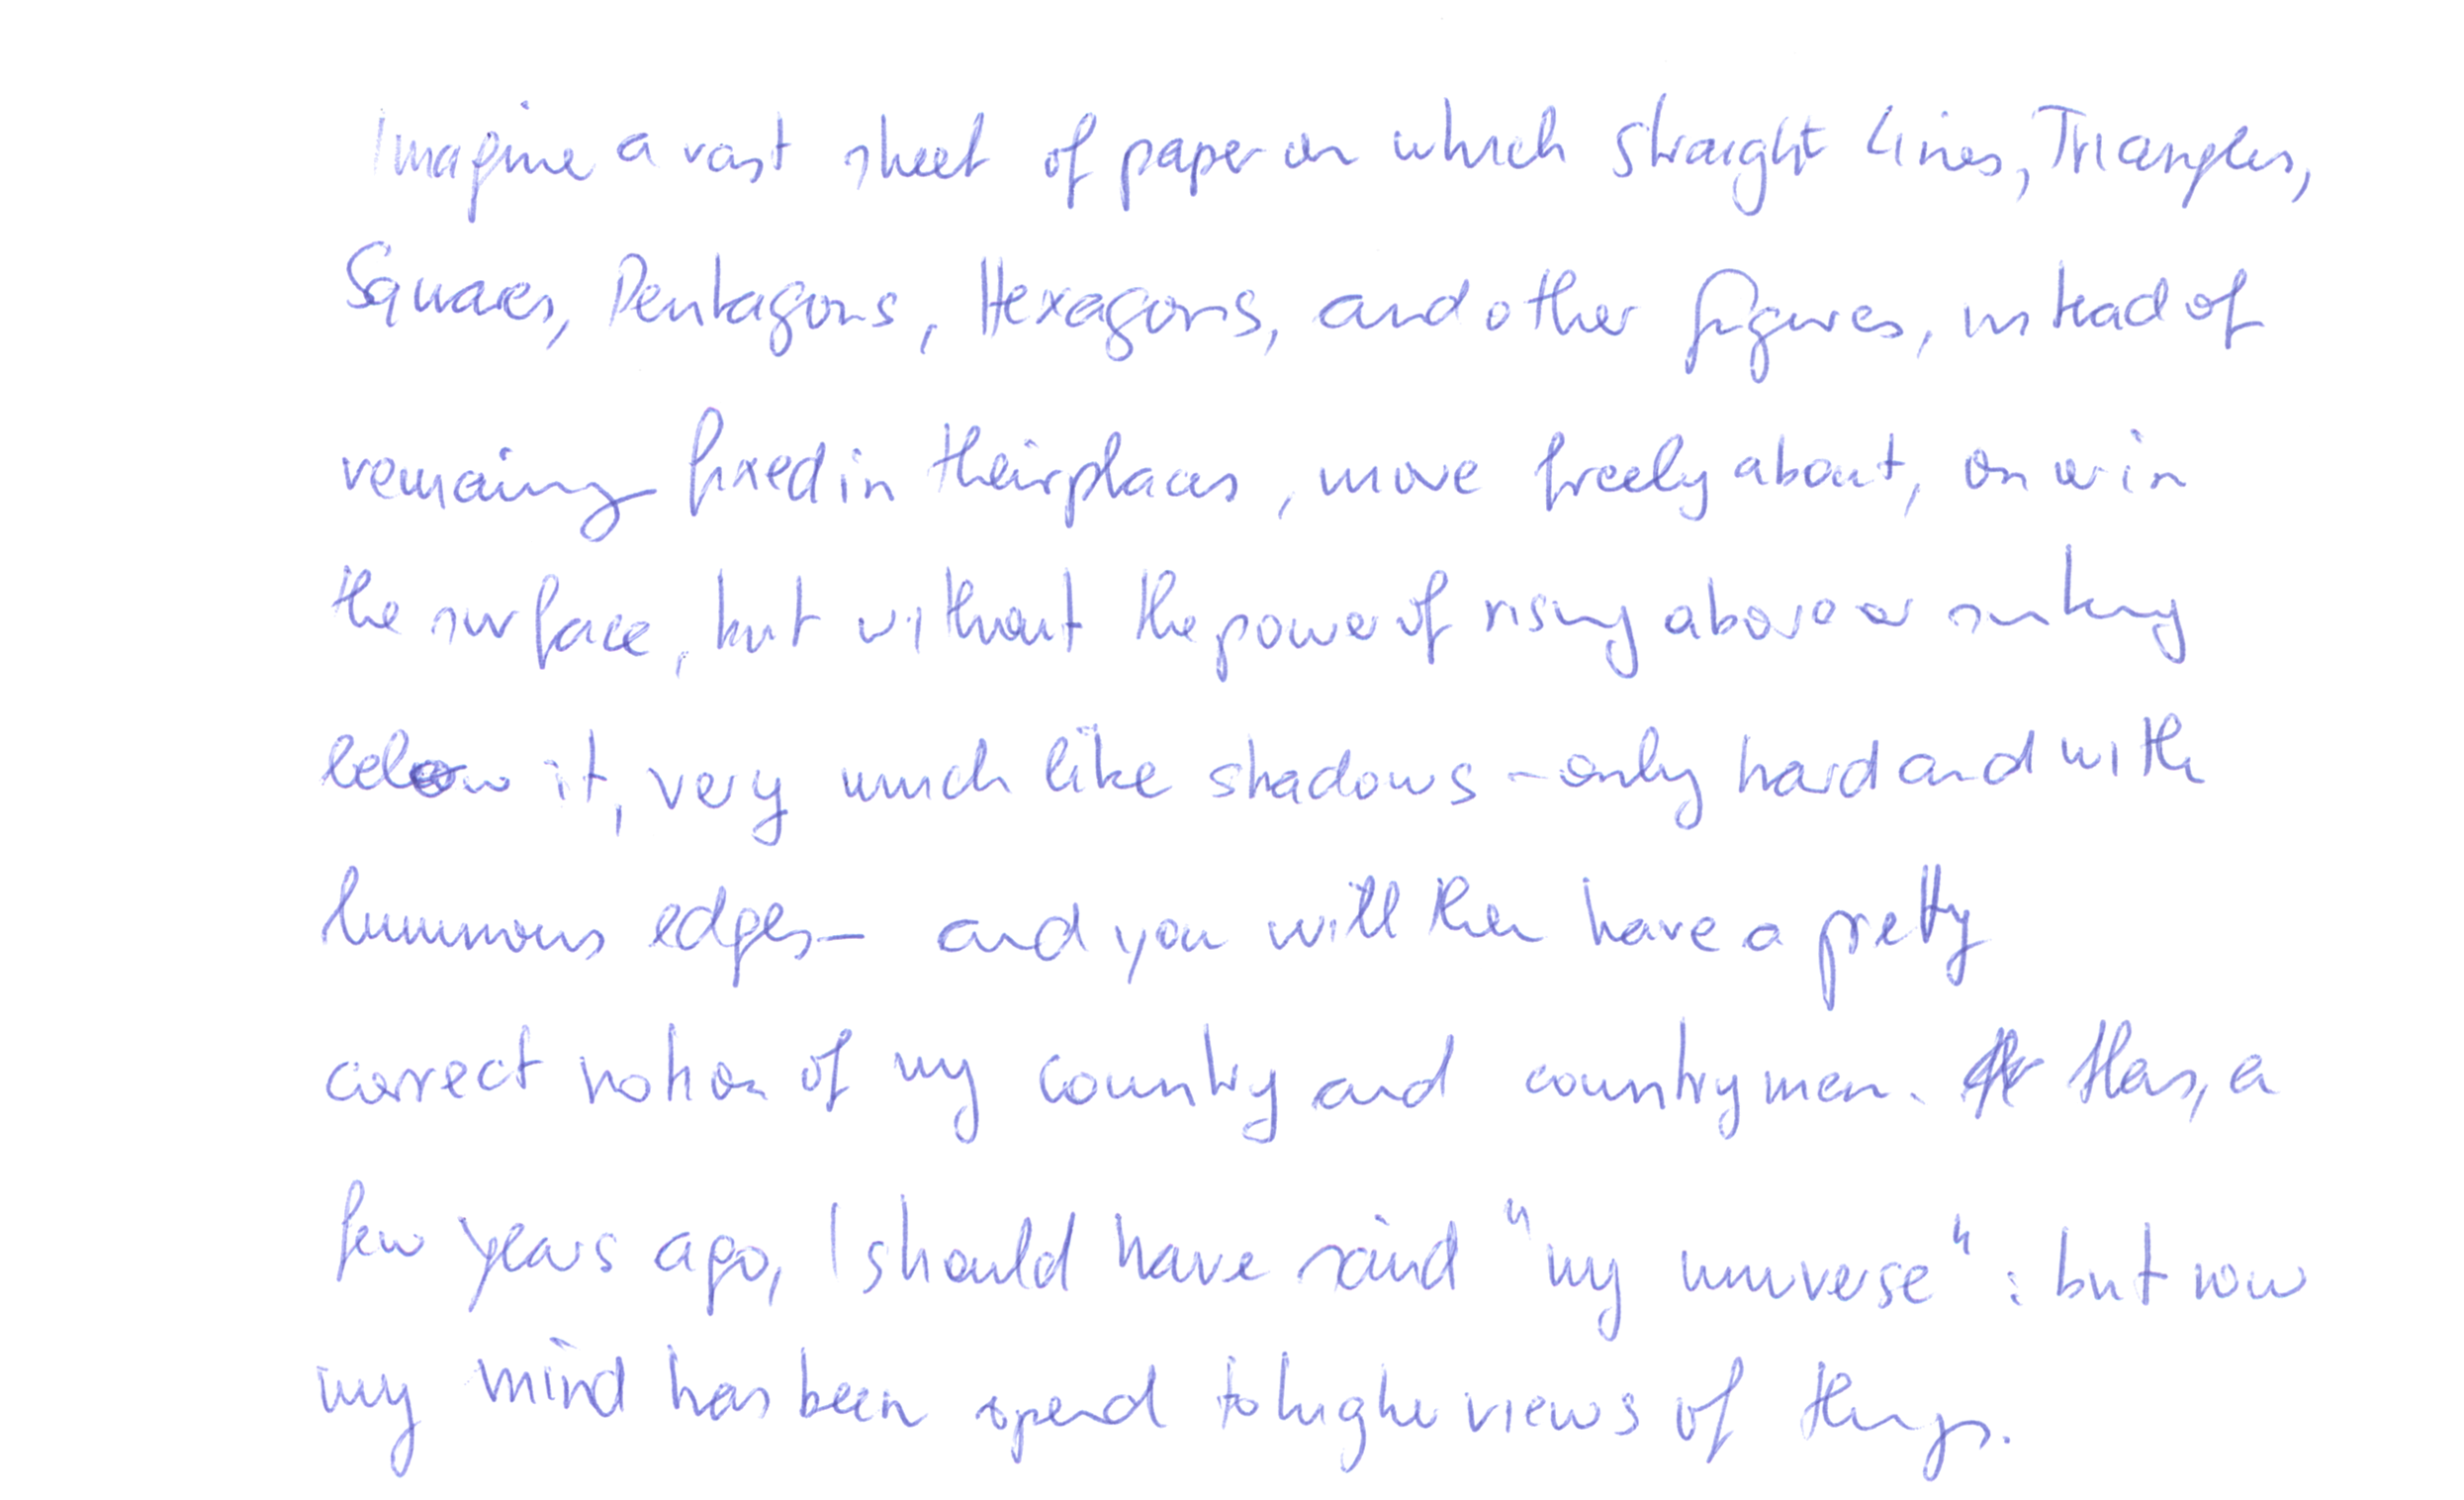 Imagine a vast sheet of paper on which straight Lines, Triangles,
Squares, Pentagons, Hexagons, and other figures, instead of
remaining fixed in their places, move freely about, on or in
the surface, but without the power of rising above or sinking
below it, very much like shadows - only hard and with
luminous edges - and you will then have a pretty
correct notion of my country and countrymen. Alas, a
few years ago, I should have said "my universe": but now
my mind has been opened to higher views of things.